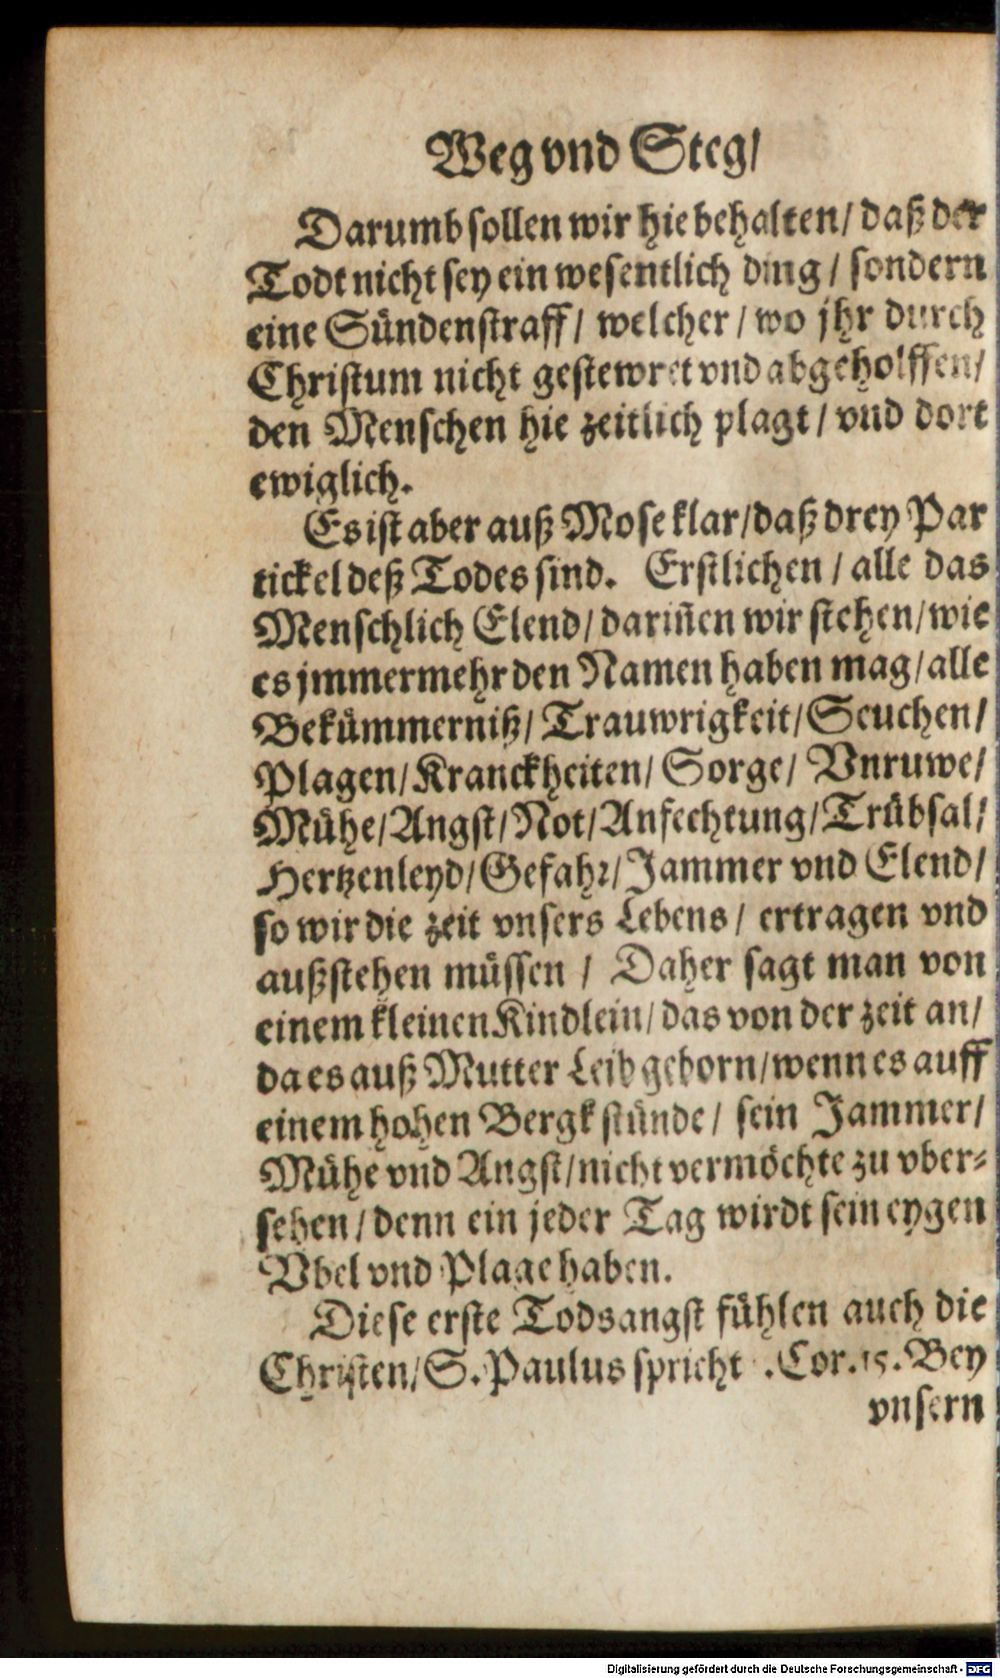 Weg vnd Steg/
Darumb sollen wir hie behalten/ daß der
Todt nicht sey ein wesentlich ding / sondern
eine Sündenstraff/ welcher / wo jhr durch
Christum nicht gestewret vnd abgeholffen/
den Menschen hie zeitlich plagt / vnd dort
ewiglich.
Es ist aber auß Mose klar/daß drey Par
tickel deß Todes sind. Erstlichen / alle das
Menschlich Elend/ darin̄en wir stehen/wie
es jmmermehr den Namen haben mag/alle
Bekümmerniß/ Trauwrigkeit/Seuchen/
Plagen/Kranckheiten/ Sorge/ Vnruwe/
Mühe/Angst/Not/Anfechtung/Trübsal/
Hertzenleyd/Gefahr/Jammer vnd Elend/
so wir die zeit vnsers Lebens/ ertragen vnd
außstehen müssen / Daher sagt man von
einem kleinen Kindlein/das von der zeit an/
da es auß Mutter Leib geborn/wenn es auff
einem hohen Bergk stünde/ sein Jammer/
Mühe vnd Angst/nicht vermöchte zu vber-
sehen/denn ein jeder Tag wirdt sein eygen
Vbel vnd Plage haben.
Diese erste Todsangst fühlen auch die
Christen/S. Paulus spricht .Cor.15.Bey
vnsern
Digitalisierung gefördert durch die Deutsche Forschungsgemeinschaft - DFG